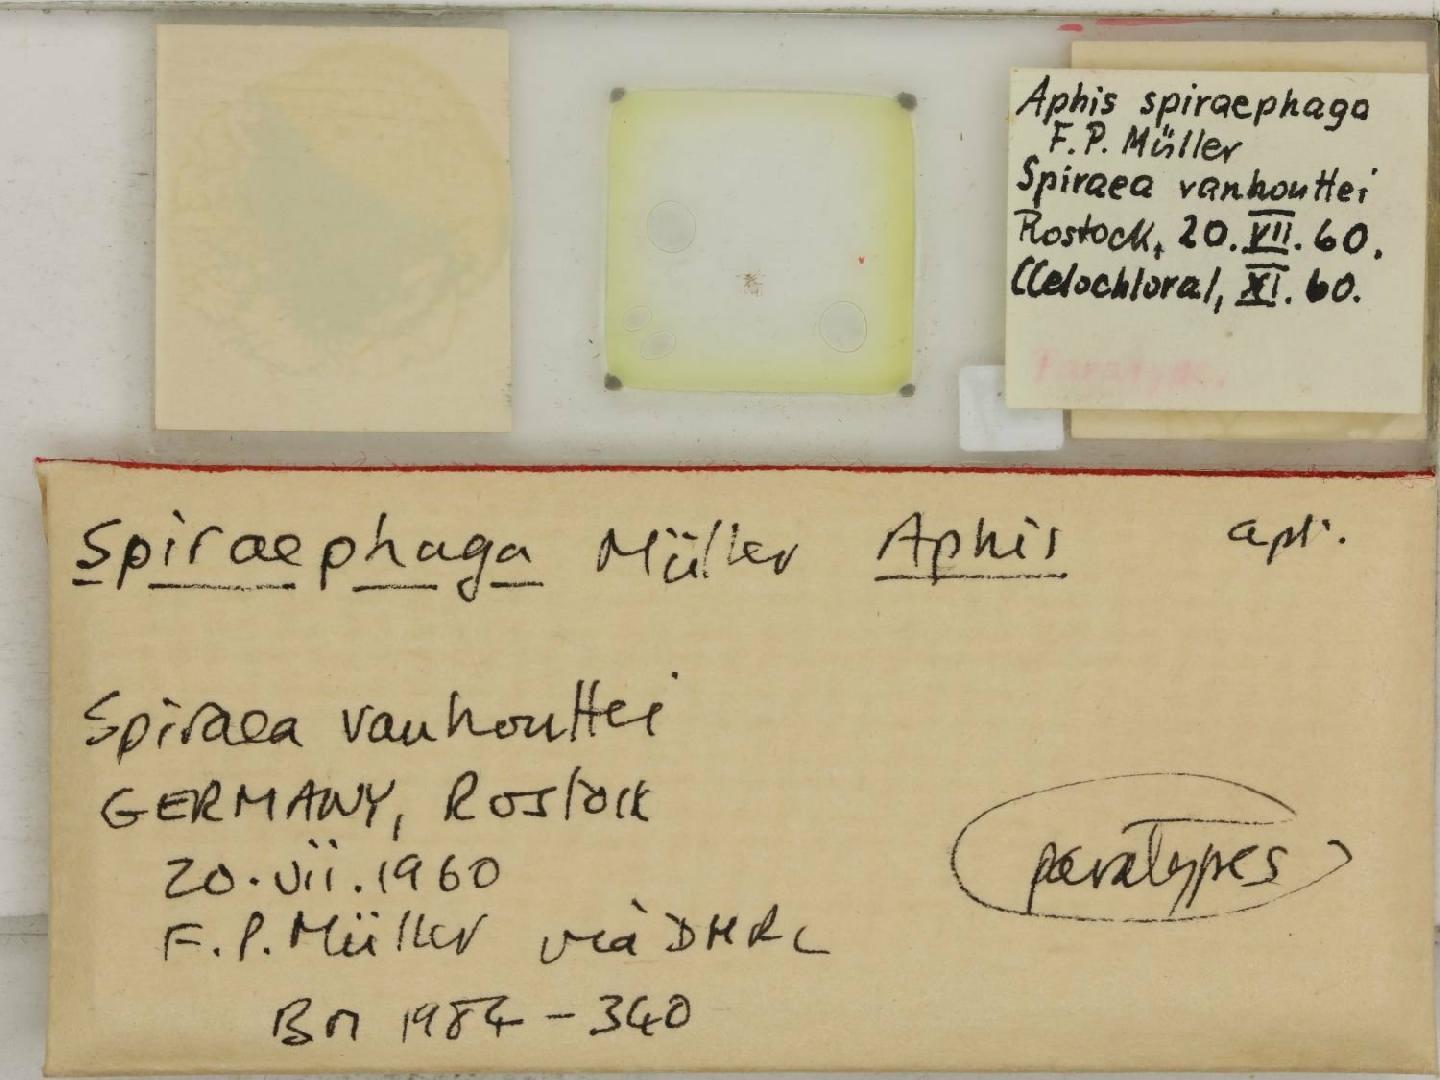 Aphis spiraephaga
F. P. Müller
Spiraea vanhouttei
Rostock, 20. VII. 60.
Celochloral, XI. 60.
Paratype.
Spiraephaga Müller Aphis apt.
Spiraea vanhouttei
GERMANY, Rostock
20.vii.1960
F. P. Müller via DHRL
BM 1984-340
paratypes